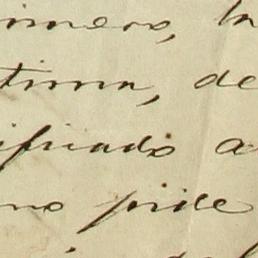 imero, la
tima, de
ificado a
no pide